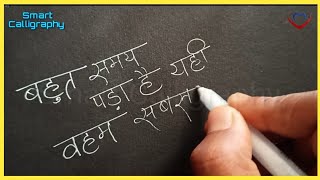 Smart
Calligraphy
बहुत समय
पड़ा है यही
वहम सबसे